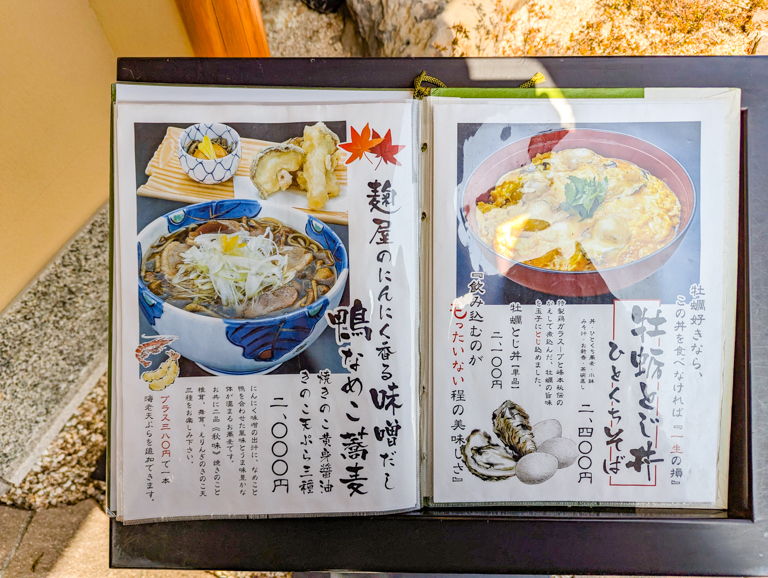 牡蠣好きなら、
この丼を食べなければ『一生の損』
牡蛎とじ丼
ひとくちそば
二、四〇〇円
丼 ひとくち蕎麦 小鉢
みそ汁 お新香・茶碗蒸し
特製鶏ガラスープと峰本秘伝の
かえしで煮込んだ、牡蠣の旨味
を玉子でとじ込めました。
牡蠣とじ丼【単品】
二、一〇〇円
『飲み込むのが
もったいない程の美味しさ』
麹屋のにんにく香る味噌だし
鴨なめこ蕎麦
焼きのこ黄身醤油
きのこ天ぷら三種
二、〇〇〇円
にんにく味噌の出汁に、なめこと
鴨を合わせた風味とうま味豊かな
体が温まるお蕎麦です。
お共に二品《秋味》焼きのこと
椎茸、舞茸、えりんぎのきのこ天
三種をお楽しみ下さい。
プラス三八〇円で一本
海老天ぷらを追加できます。